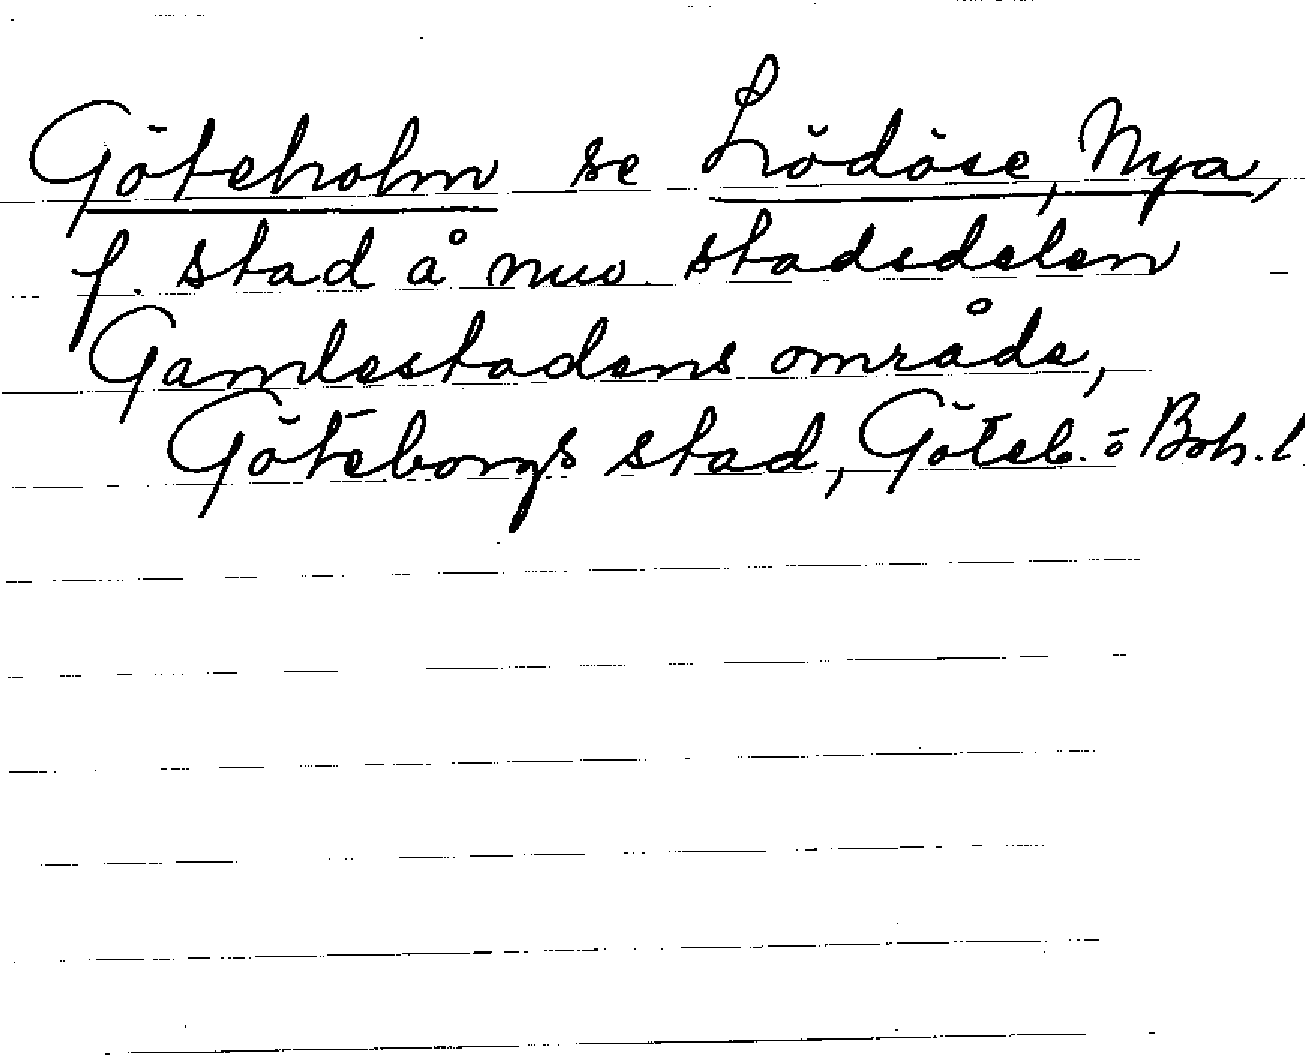 Göteholm se Lödöse, Nya,
f. stad å nuv. stadsdelen
Gamlestadens område,
Göteborgs stad, Göteb. o Boh. l.